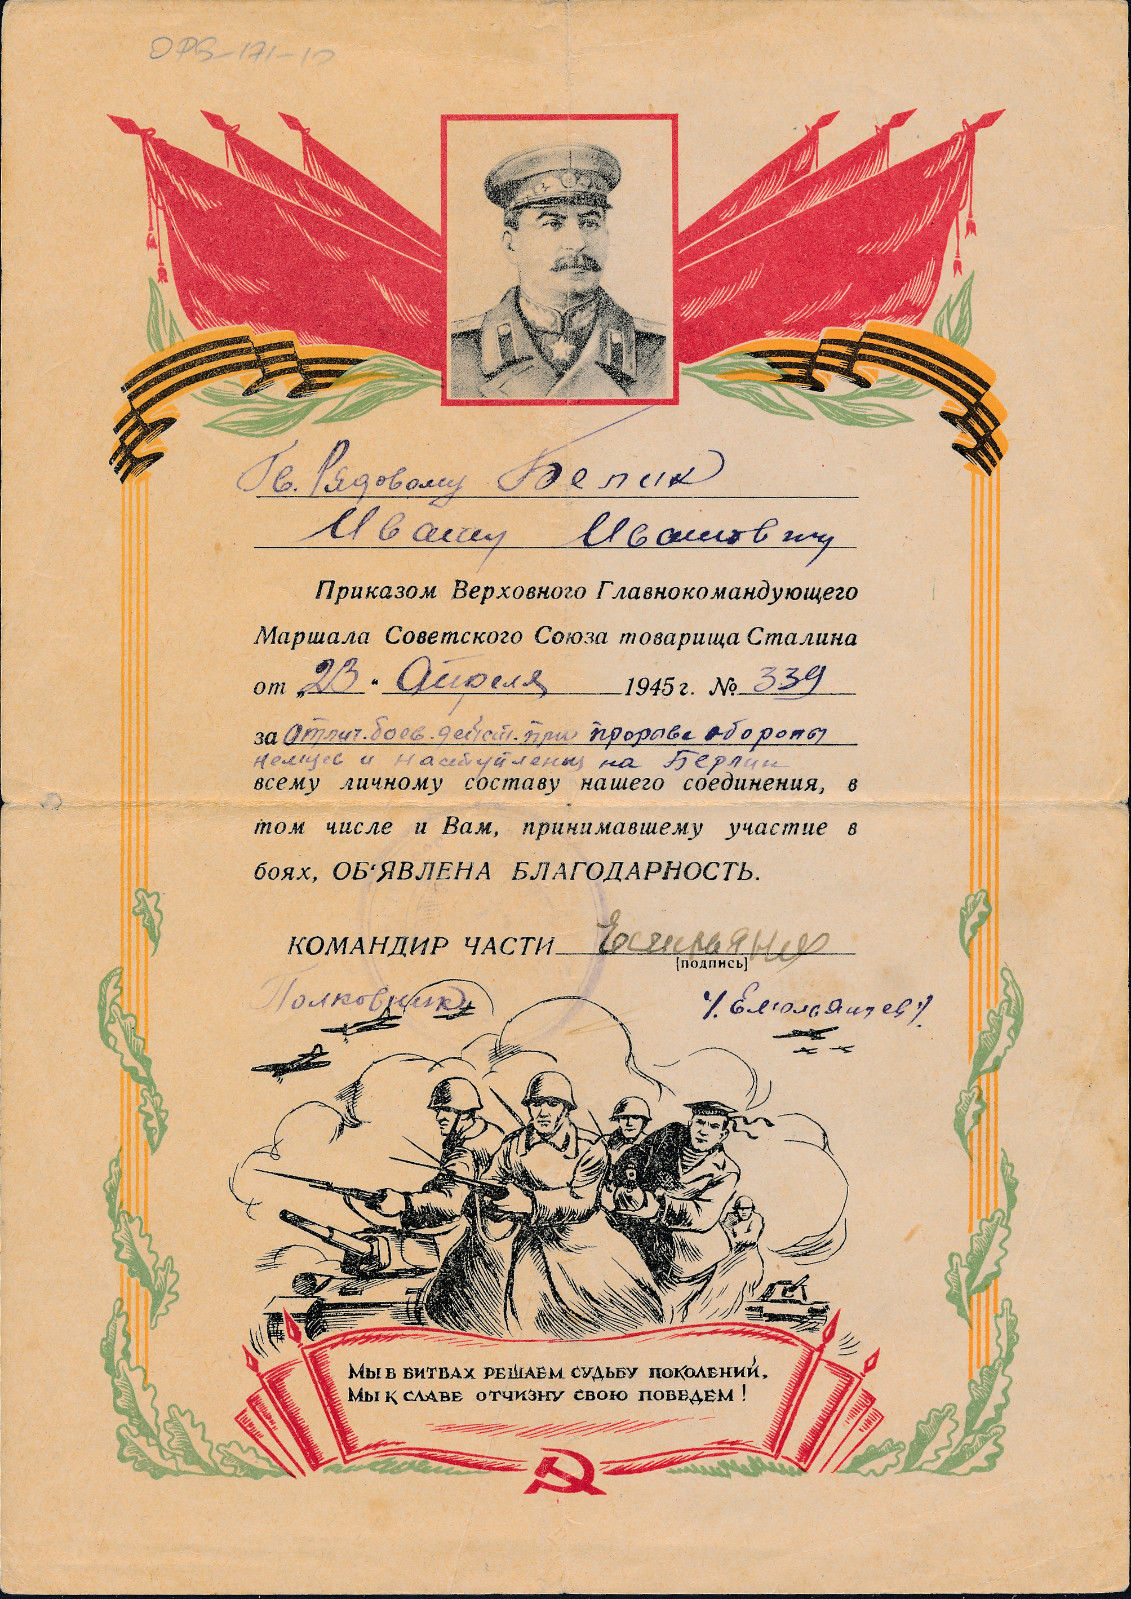 OPS-171-10
Гв. Рядовому Белик
Ивану Ивановичу
Приказом Верховного Главнокомандующего
Маршала Советского Союза товарища Сталина
от „23" Апреля 1945 г. № 339
за отлич. боев. действ. при прорыве обороны
немцев и наступлении на Берлин
всему личному составу нашего соединения, в
том числе и Вам, принимавшему участие в
боях, ОБ'ЯВЛЕНА БЛАГОДАРНОСТЬ.
КОМАНДИР ЧАСТИ
[подпись]
Полковник /Емельянцев/.
Мы в битвах решаем судьбу поколений,
Мы к славе отчизну свою поведем!